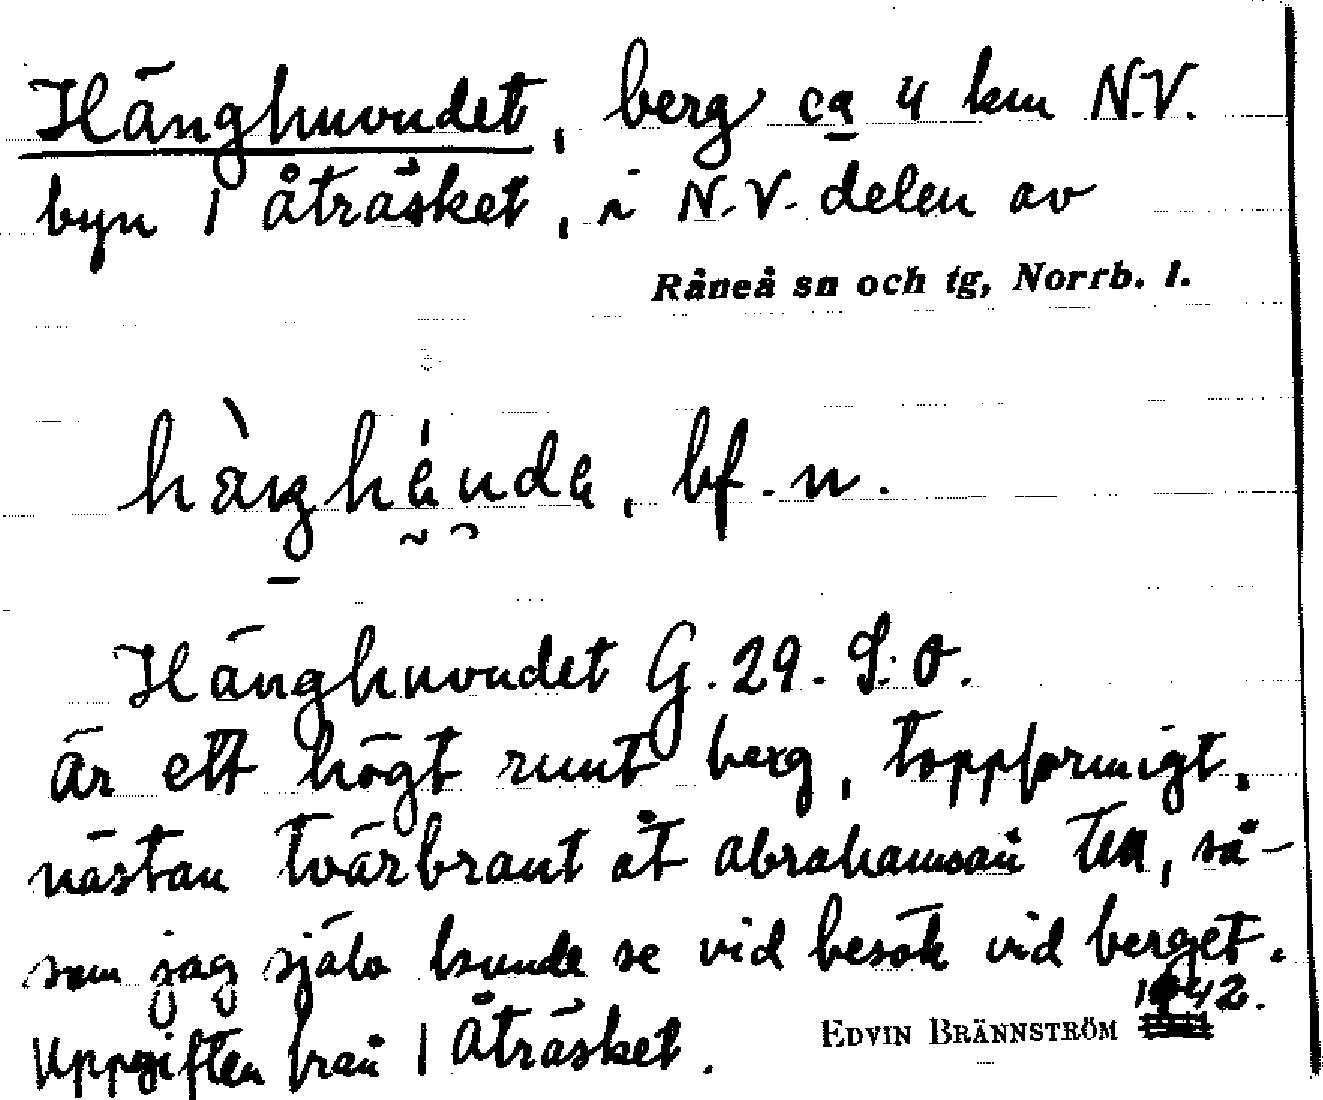 Hänghuvudet, berg ca 4 km N.V.
byn 1 åträsket, i N.V. delen av
Råneå sn och tg, Norrb. l.
bf. n.
Hänghuvudet G. 29. S:O.
är ett högt runt berg, toppformigt,
nästan tvärbrant åt abrahamsån
så-
som jag själv kunde se vid besök vid berget.
Uppgiften från 1 Åträsket.
EDVIN BRÄNNSTRÖM 1942.